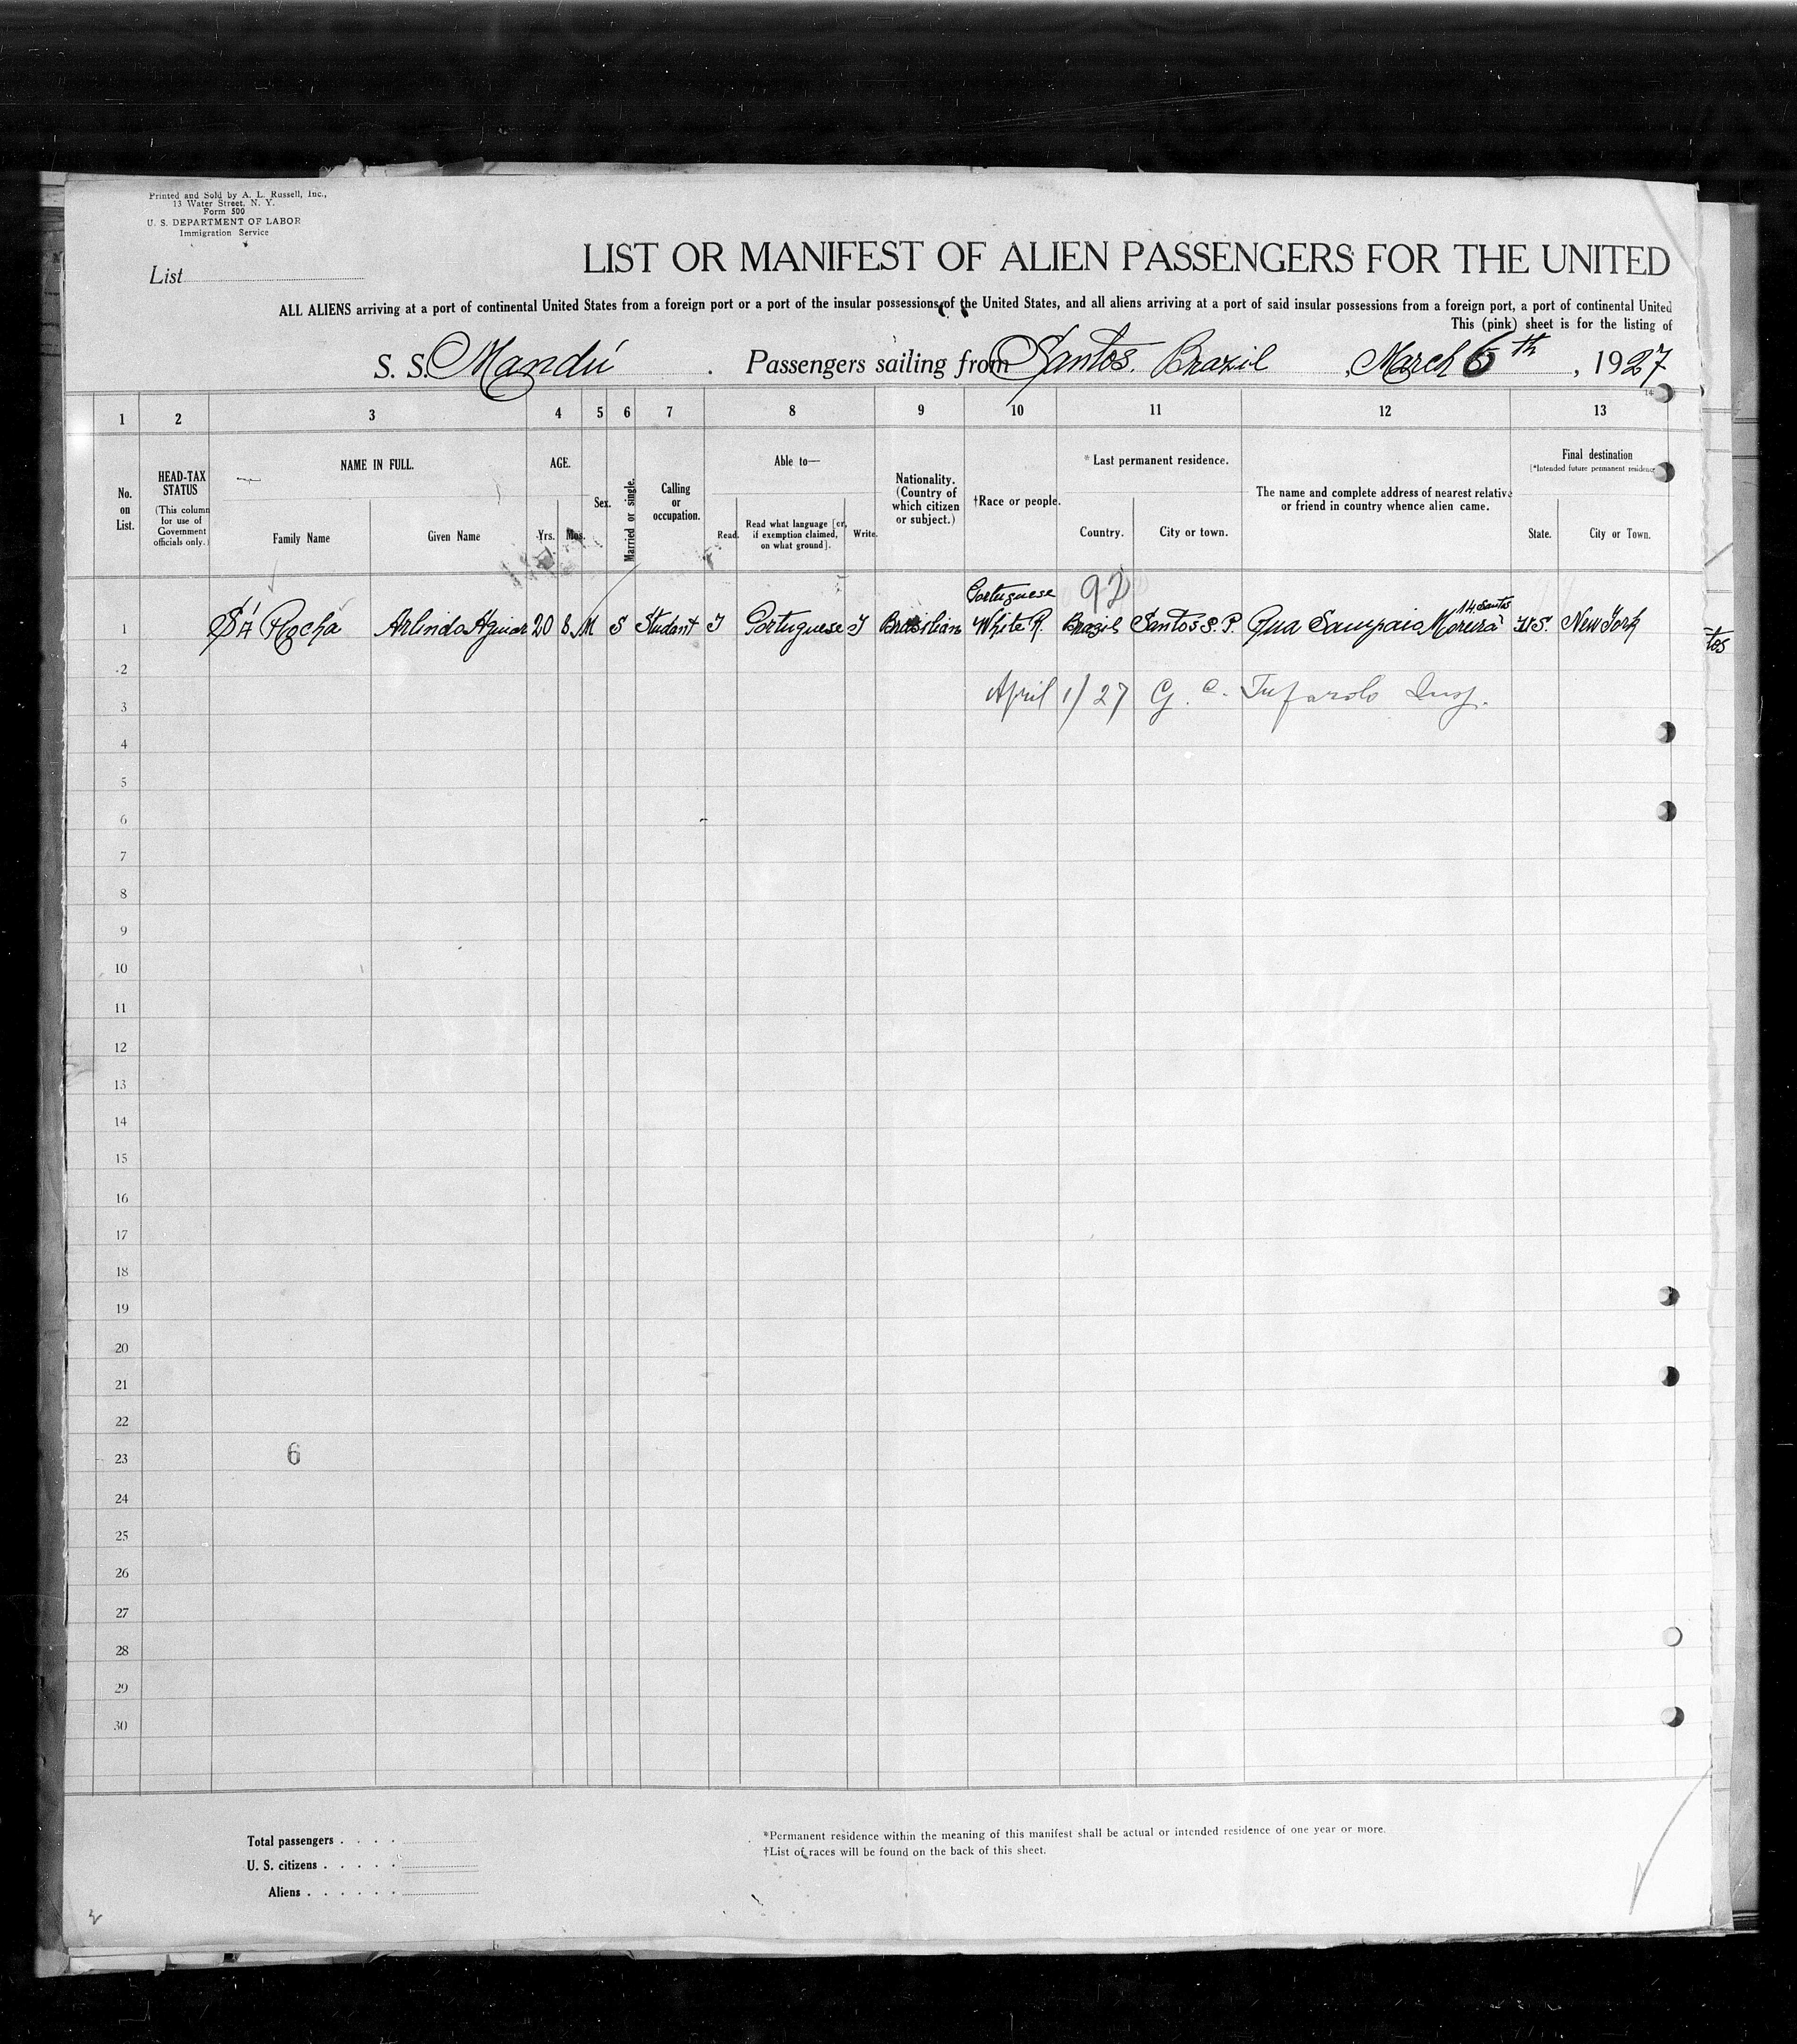 Printed and Sold by A. L. Russell, Inc.,
13 Water Street, N. Y.
Form 500
U. S. DEPARTMENT OF LABOR
Immigration Service
List
LIST OR MANIFEST OF ALIEN PASSENGERS FOR THE UNITED
ALL ALIENS arriving at a port of continental United States from a foreign port or a port of the insular possessions of the United States, and all aliens arriving at a port of said insular possessions from a foreign port, a port of continental United
This (pink) sheet is for the listing of
S. S. Mandú . Passengers sailing from Santos. Brazil , March 6th , 1927
14
1 2 3 4 5 6 7 8 9 10 11 12 13
HEAD-TAX STATUS
(This column for use of Government officials only.)
No. on List.
NAME IN FULL.
Family Name
Given Name
AGE.
Yrs.
Mos.
Sex.
Married or single.
Calling or occupation.
Able to—
Read.
Read what language [or, if exemption claimed, on what ground].
Write.
Nationality. (Country of which citizen or subject.)
†Race or people.
*Last permanent residence.
Country.
City or town.
The name and complete address of nearest relative or friend in country whence alien came.
Final destination
(*Intended future permanent residence
State.
City or Town.
Portuguese 92
14, Santos
1 SÁ Rocha Arlindo Aguiar 20 8 M S Student Portuguese Brasilian White R. Brazil Santos S. P. Rua Sampaio Moreira U.S. New York
tos
2
April 1/27 G. C. Insp.
3
4
5
6
7
8
9
10
11
12
13
14
15
16
17
18
19
20
21
22
23 6
24
25
26
27
28
29
30
Total passengers . . . .
U. S. citizens . . . . .
Aliens . . . . . .
*Permanent residence within the meaning of this manifest shall be actual or intended residence of one year or more.
†List of races will be found on the back of this sheet.